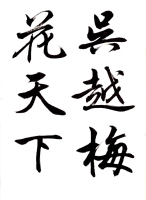 吳越梅
花天下